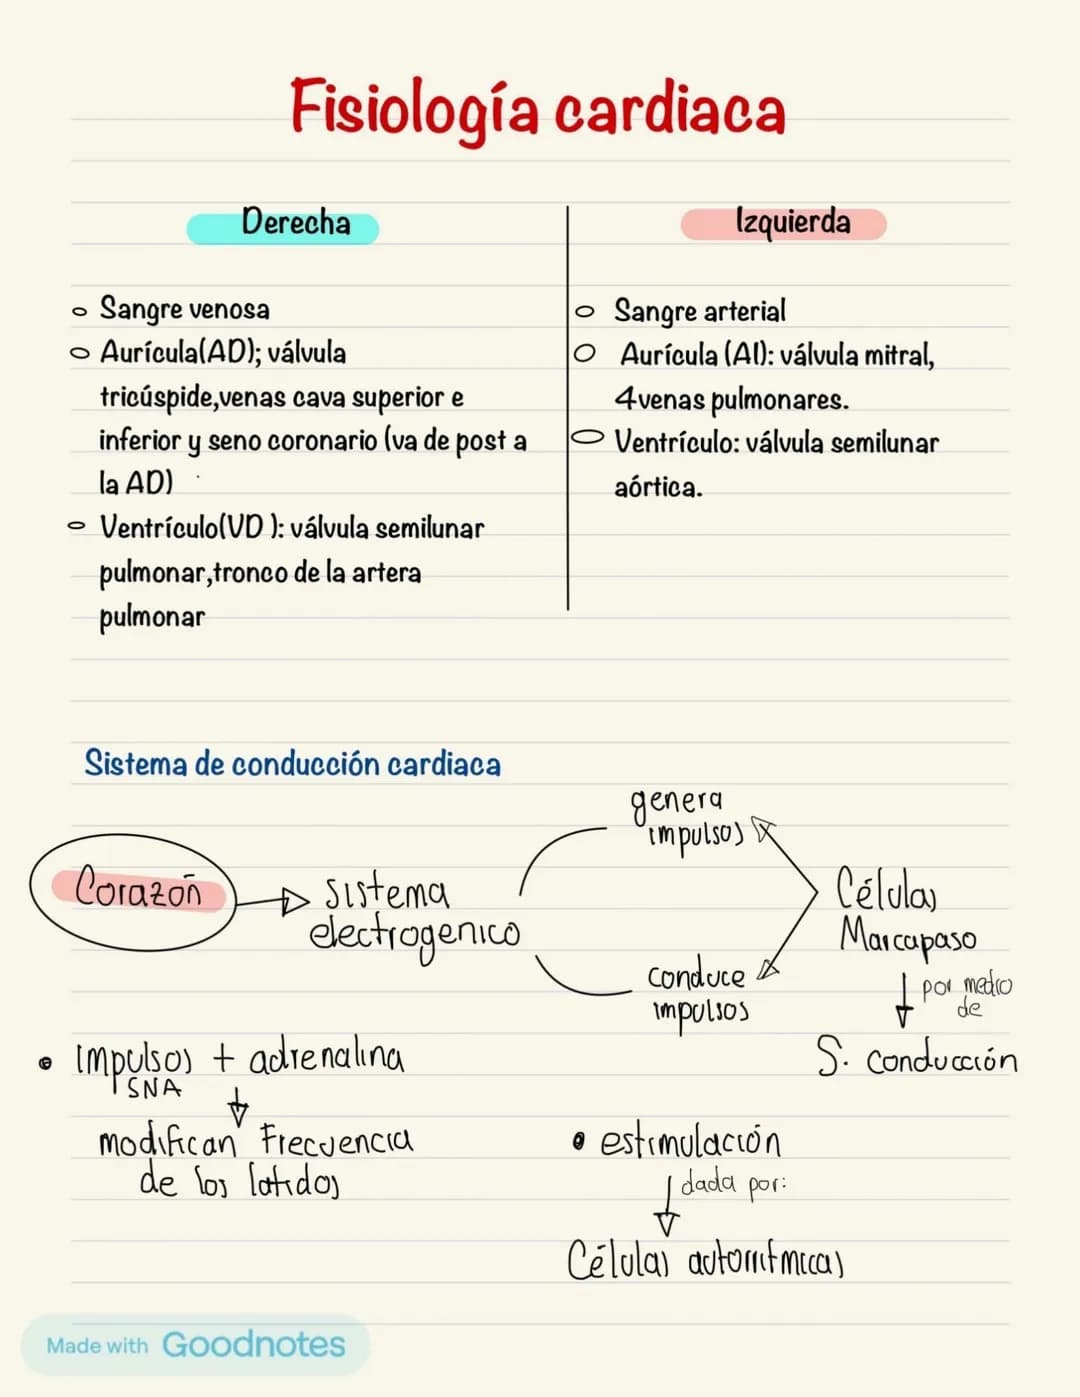 Fisiología cardiaca
Derecha
Sangre venosa
Aurícula(AD); válvula
tricúspide,venas cava superior e
inferior y seno coronario (va de post a
la AD)
Ventrículo(VD ): válvula semilunar
pulmonar,tronco de la artera
pulmonar
Izquierda
Sangre arterial
Aurícula (AI): válvula mitral,
4venas pulmonares.
Ventrículo: válvula semilunar
aórtica.
Sistema de conducción cardiaca
Corazón
sistema
electrogenico
genera
impulsos
conduce
impulsos
Células
Marcapaso
por medio
de
S. conducción
impulsos + adrenalina
SNA
modifican Frecuencia
de los latidos
estimulación
dada por:
Células autorritmicas
Made with Goodnotes